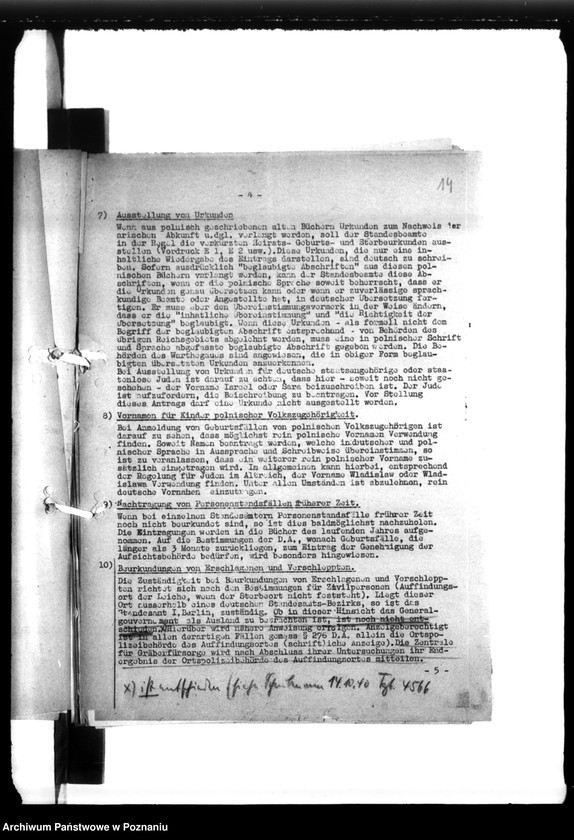 14
- 4 -
7) Ausstellung von Urkunden
Wenn aus polnisch geschriebenen alten Büchern Urkunden zum Nachweis der
arischen Abkunft u.dgl. verlangt werden, soll der Standesbeamte
in der Regel die verkürzten Heirats- Geburts- und Sterbeurkunden aus-
stellen (Vordruck E 1, E 2 usw.).Diese Urkunden, die nur eine in-
haltliche Wiedergabe des Eintrags darstellen, sind deutsch zu schrei-
ben. Sofern ausdrücklich "beglaubigte Abschriften" aus diesen pol-
nischen Büchern verlangt werden, kann der Standesbeamte diese Ab-
schriften, wenn er die polnische Sprache soweit beherrscht, dass er
die Urkunden genau übersetzen kann oder wenn er zuverlässige sprach-
kundige Beamte oder Angestellte hat, in deutscher Übersetzung fer-
tigen. Er muss aber den Übereinstimmungsvermerk in der Weise ändern,
dass er die "inhaltliche Übereinstimmung" und "die Richtigkeit der
Übersetzung" beglaubigt. Wenn diese Urkunden - als formell nicht dem
Begriff der beglaubigten Abschrift entsprechend - von Behörden des
übrigen Reichsgebiets abgelehnt werden, muss eine in polnischer Schrift
und Sprache abgefasste beglaubigte Abschrift gegeben werden. Die Be-
hörden des Warthegaus sind angewiesen, die in obiger Form beglau-
bigten übersetzten Urkunden anzuerkennen.
Bei Ausstellung von Urkunden für deutsche staatsangehörige oder staa-
tenlose Juden ist darauf zu achten, dass hier - soweit noch nicht ge-
schehen - der Vorname Israel oder Sara beizuschreiben ist. Der Jude
ist aufzufordern, die Beischreibung zu beantragen. Vor Stellung
dieses Antrags darf eine Urkunde nicht ausgestellt werden.
8) Vornamen für Kinder polnischer Volkszugehörigkeit.
Bei Anmeldung von Geburtsfällen von polnischen Volkszugehörigen ist
darauf zu sehen, dass möglichst rein polnische Vornamen Verwendung
finden. Soweit Namen beantragt werden, welche indeutscher und pol-
nischer Sprache in Aussprache und Schreibweise übereinstimmen, so
ist zu veranlassen, dass ein weiterer rein polnischer Vorname zu-
sätzlich eingetragen wird. In allgemeinen kann hierbei, entsprechend
der Regelung für Juden im Altreich, der Vorname Wladislaw oder Wlad-
islawa Verwendung finden. Unter allen Umständen ist abzulehnen, rein
deutsche Vornamen einzutragen.
9) Nachtragung von Personenstandsfällen früherer Zeit.
Wenn bei einzelnen Standesämtern Personenstandsfälle früherer Zeit
noch nicht beurkundet sind, so ist dies baldmöglichst nachzuholen.
Die Eintragungen werden in die Bücher des laufenden Jahres aufge-
nommen. Auf die Bestimmungen der D.A., wonach Geburtsfälle, die
länger als 3 Monate zurückliegen, zum Eintrag der Genehmigung der
Aufsichtsbehörde bedürfen, wird besonders hingewiesen.
10) Beurkundungen von Erschlagenen und Verschleppten.
Die Zuständigkeit bei Beurkundungen von Erschlagenen und Verschlepp-
ten richtet sich nach den Bestimmungen für Zivilpersonen (Auffindungs-
ort der Leiche, wenn der Sterbeort nicht feststeht). Liegt dieser
Ort ausserhalb eines deutschen Standesamts-Bezirks, so ist das
Standesamt I,Berlin, zuständig. Ob in dieser Hinsicht das General-
gouvernement als Ausland zu betrachten ist, ist noch nicht ent-
schieden. Hierüber wird nähere Anweisung erfolgen. Anzeigeberechtigt
ist in allen derartigen Fällen gemäss § 276 D.A. allein die Ortspo-
lizeibehörde des Auffindungsortes (schriftliche Anzeige).Die Zentrale
für Gräberfürsorge wird nach Abschluss ihrer Untersuchungen ihr End-
ergebnis der Ortspolizeibehörde des Auffindungsortes mitteilen.
- 5 -
x) ist entschieden 14.10.40 4566
Archiwum Państwowe w Poznaniu